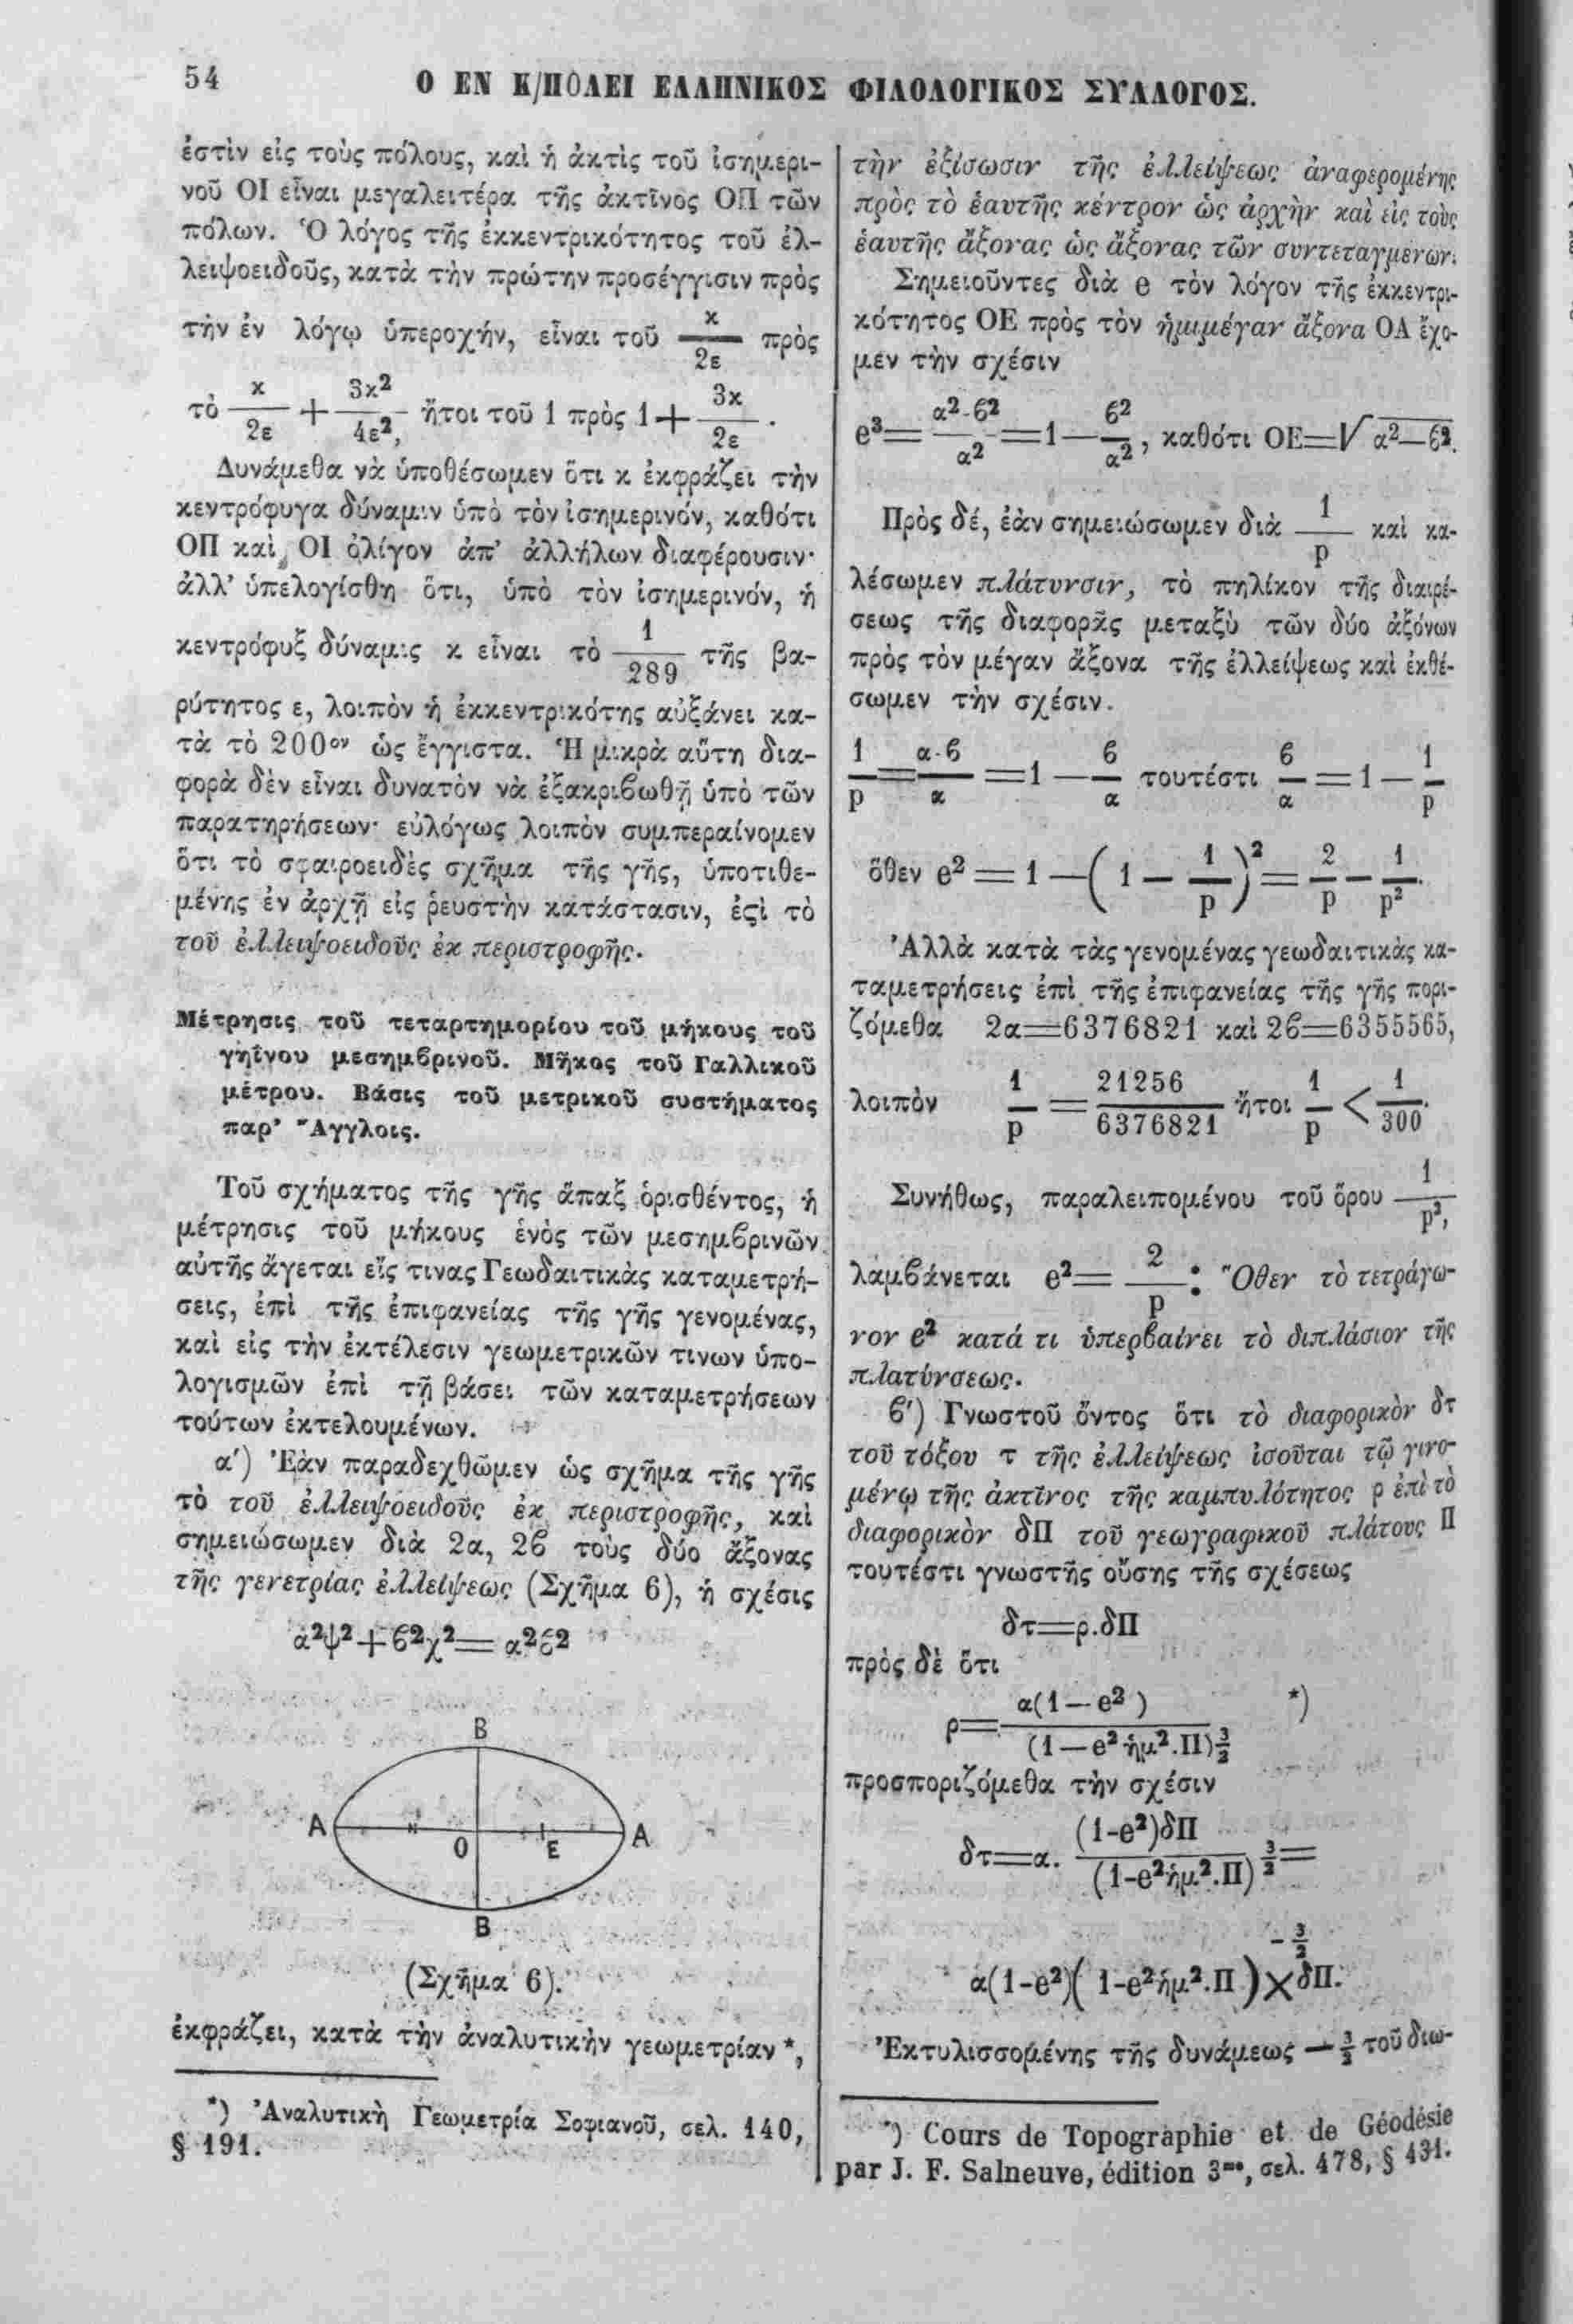 54
Ο ΕΝ Κ/ΠΟΛΕΙ ΕΛΛΗΝΙΚΟΣ ΦΙΛΟΛΟΓΙΚΟΣ ΣΥΛΛΟΓΟΣ.
ἐστὶν εἰς τοὺς πόλους, καὶ ἡ ἀκτὶς τοῦ ἰσημερι-
νοῦ ΟΙ εἶναι μεγαλειτέρα τῆς ἀκτῖνος ΟΠ τῶν
πόλων. Ὁ λόγος τῆς ἐκκεντρικότητος τοῦ ἐλ-
λειψοειδοῦς, κατὰ τὴν πρώτην προσέγγισιν πρὸς
τὴν ἐν λόγῳ ὑπεροχήν, εἶναι τοῦ κ/2ε πρὸς
τὸ κ/2ε + 3κ²/4ε², ἤτοι τοῦ 1 πρὸς 1+ 3κ/2ε.
Δυνάμεθα νὰ ὑποθέσωμεν ὅτι κ ἐκφράζει τὴν
κεντρόφυγα δύναμιν ὑπὸ τὸν ἰσημερινόν, καθότι
ΟΠ καὶ ΟΙ ὀλίγον ἀπ' ἀλλήλων διαφέρουσιν·
ἀλλ' ὑπελογίσθη ὅτι, ὑπὸ τὸν ἰσημερινόν, ἡ
κεντρόφυξ δύναμις κ εἶναι τὸ 1/289 τῆς βα-
ρύτητος ε, λοιπὸν ἡ ἐκκεντρικότης αὐξάνει κα-
τὰ τὸ 200ον ὡς ἔγγιστα. Ἡ μικρὰ αὕτη δια-
φορὰ δὲν εἶναι δυνατὸν νὰ ἐξακριβωθῇ ὑπὸ τῶν
παρατηρήσεων· εὐλόγως λοιπὸν συμπεραίνομεν
ὅτι τὸ σφαιροειδὲς σχῆμα τῆς γῆς, ὑποτιθε-
μένης ἐν ἀρχῇ εἰς ῥευστὴν κατάστασιν, ἐστὶ τὸ
τοῦ ἐλλειψοειδοῦς ἐκ περιστροφῆς.
Μέτρησις τοῦ τεταρτημορίου τοῦ μήκους τοῦ
γηΐνου μεσημβρινοῦ. Μῆκος τοῦ Γαλλικοῦ
μέτρου. Βάσις τοῦ μετρικοῦ συστήματος
παρ' Ἄγγλοις.
Τοῦ σχήματος τῆς γῆς ἅπαξ ὁρισθέντος, ἡ
μέτρησις τοῦ μήκους ἑνὸς τῶν μεσημβρινῶν
αὐτῆς ἄγεται εἴς τινας Γεωδαιτικὰς καταμετρή-
σεις, ἐπὶ τῆς ἐπιφανείας τῆς γῆς γενομένας,
καὶ εἰς τὴν ἐκτέλεσιν γεωμετρικῶν τινων ὑπο-
λογισμῶν ἐπὶ τῇ βάσει τῶν καταμετρήσεων
τούτων ἐκτελουμένων.
α') Ἐὰν παραδεχθῶμεν ὡς σχῆμα τῆς γῆς
τὸ τοῦ ἐλλειψοειδοῦς ἐκ περιστροφῆς, καὶ
σημειώσωμεν διὰ 2α, 2β τοὺς δύο ἄξονας
τῆς γενετρίας ἐλλείψεως (Σχῆμα 6), ἡ σχέσις
α²ψ²+β²χ²=α²β²
B
A
O
E
A
B
(Σχῆμα 6).
ἐκφράζει, κατὰ τὴν ἀναλυτικὴν γεωμετρίαν *,
*) Ἀναλυτικὴ Γεωμετρία Σοφιανοῦ, σελ. 140,
§ 191.
τὴν ἐξίσωσιν τῆς ἐλλείψεως ἀναφερομένης
πρὸς τὸ ἑαυτῆς κέντρον ὡς ἀρχὴν καὶ εἰς τοὺς
ἑαυτῆς ἄξονας ὡς ἄξονας τῶν συντεταγμένων.
Σημειοῦντες διὰ e τὸν λόγον τῆς ἐκκεντρι-
κότητος ΟΕ πρὸς τὸν ἡμιμέγαν ἄξονα ΟΑ ἔχο-
μεν τὴν σχέσιν
e³= α²-β²/α² =1— β²/α², καθότι ΟΕ=√α²—β².
Πρὸς δέ, ἐὰν σημειώσωμεν διὰ 1/p καὶ κα-
λέσωμεν πλάτυνσιν, τὸ πηλίκον τῆς διαιρέ-
σεως τῆς διαφορᾶς μεταξὺ τῶν δύο ἀξόνων
πρὸς τὸν μέγαν ἄξονα τῆς ἐλλείψεως καὶ ἐκθέ-
σωμεν τὴν σχέσιν.
1/p = α-β/α =1— β/α τουτέστι β/α =1— 1/p
ὅθεν e²=1—(1— 1/p)²= 2/p — 1/p².
Ἀλλὰ κατὰ τὰς γενομένας γεωδαιτικὰς κα-
ταμετρήσεις ἐπὶ τῆς ἐπιφανείας τῆς γῆς πορι-
ζόμεθα 2α=6376821 καὶ 2β=6355565,
λοιπὸν 1/p = 21256/6376821 ἤτοι 1/p < 1/300.
Συνήθως, παραλειπομένου τοῦ ὅρου 1/p²,
λαμβάνεται e²= 2/p: Ὅθεν τὸ τετράγω-
νον e² κατά τι ὑπερβαίνει τὸ διπλάσιον τῆς
πλατύνσεως.
β') Γνωστοῦ ὄντος ὅτι τὸ διαφορικὸν δτ
τοῦ τόξου τ τῆς ἐλλείψεως ἰσοῦται τῷ γινο-
μένῳ τῆς ἀκτῖνος τῆς καμπυλότητος ρ ἐπὶ τὸ
διαφορικὸν δΠ τοῦ γεωγραφικοῦ πλάτους Π
τουτέστι γνωστῆς οὔσης τῆς σχέσεως
δτ=ρ.δΠ
πρὸς δὲ ὅτι
ρ= α(1—e²)/(1—e²ἡμ².Π)3/2 *)
προσποριζόμεθα τὴν σχέσιν
δτ=α. (1-e²)δΠ/(1-e²ἡμ².Π)3/2=
α(1-e²)(1-e²ἡμ².Π)-3/2×δΠ.
Ἐκτυλισσομένης τῆς δυνάμεως —3/2 τοῦ διω-
*) Cours de Topographie et de Géodésie
par J. F. Salneuve, édition 3me, σελ. 478, § 431.